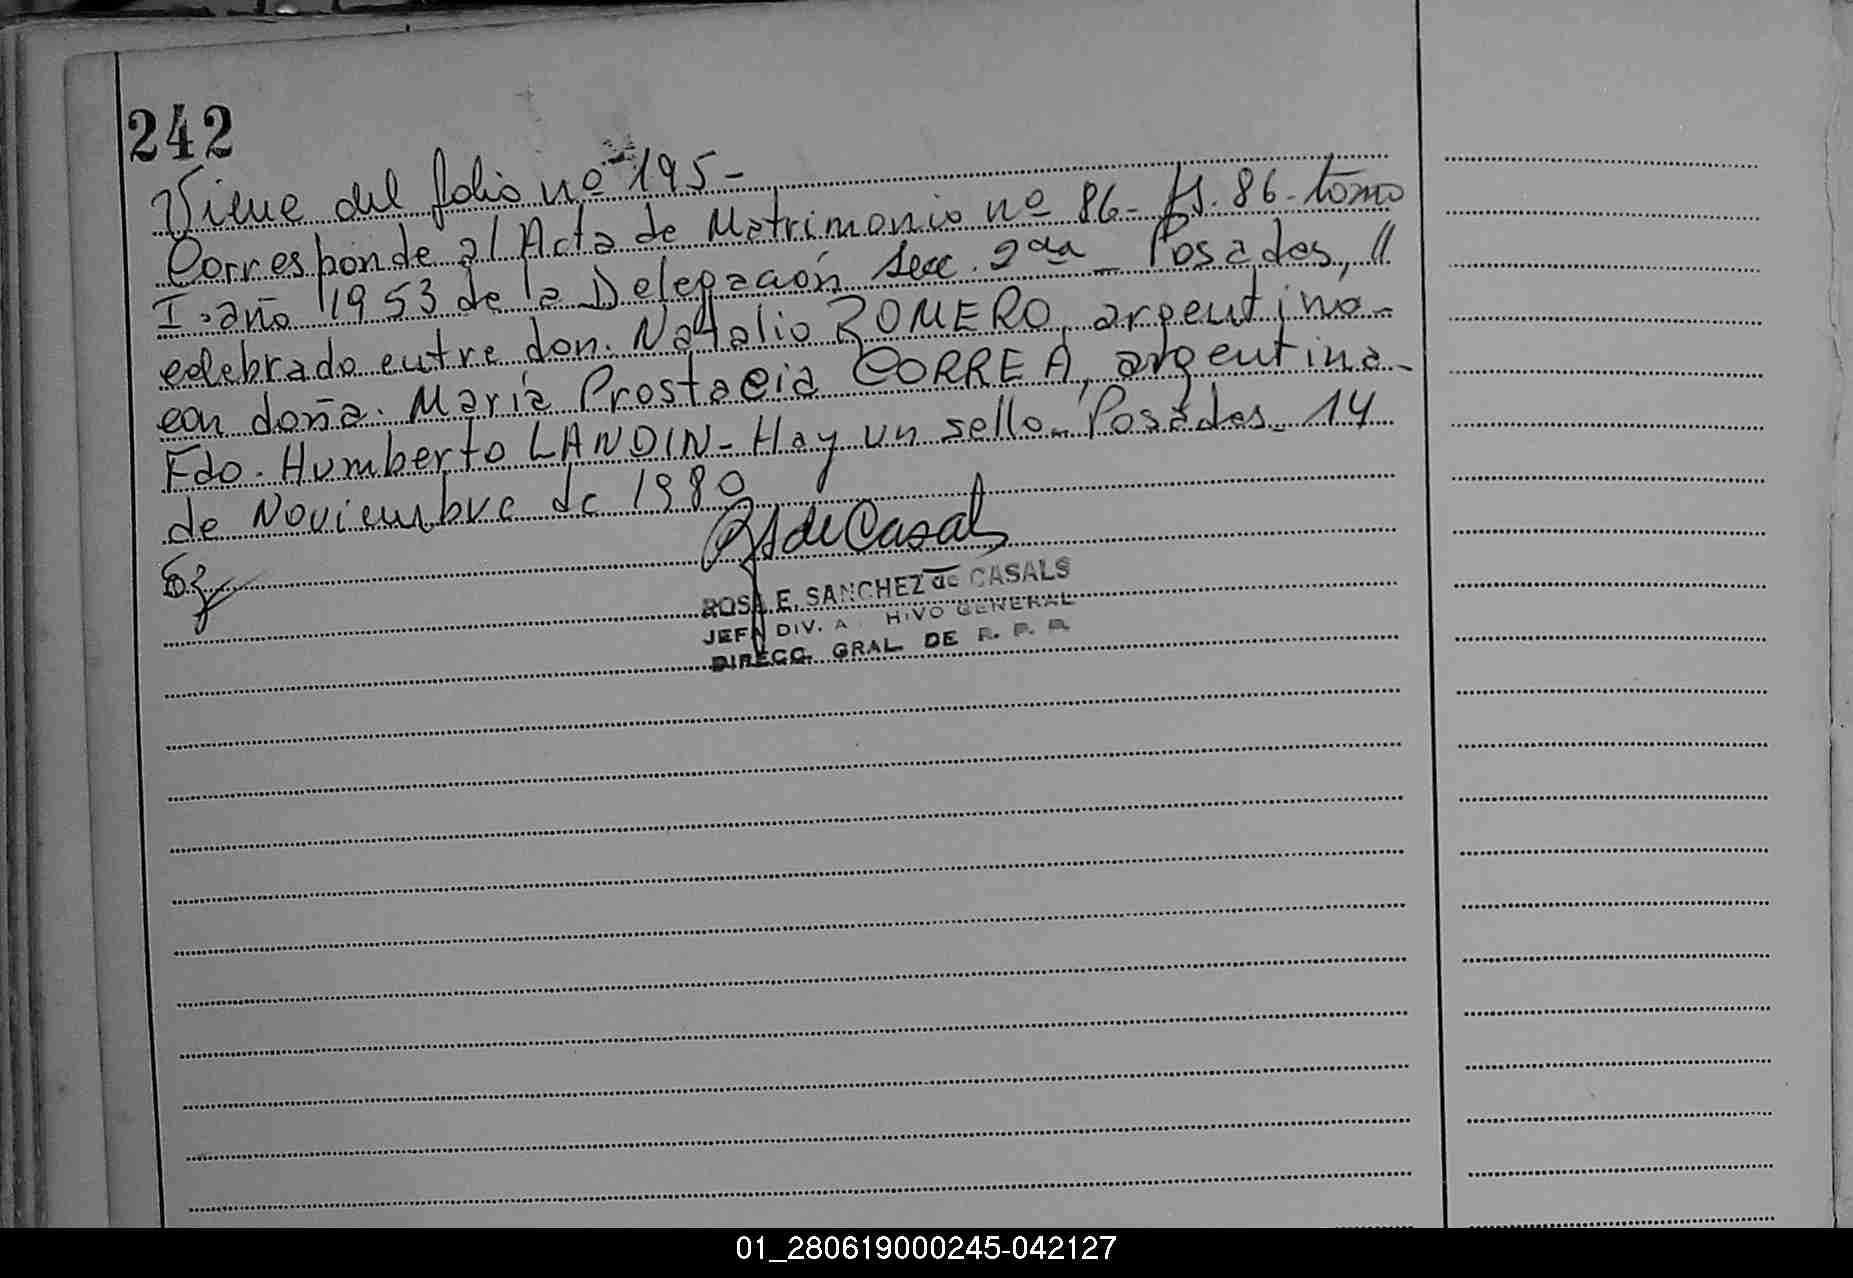 242
Viene del folio nº 195-
Corresponde al Acta de Matrimonio nº 86- fs. 86- tomo
I- año 1953 de la Delegación Secc. 2da - Posadas, //
celebrado entre don. Natalio ROMERO, argentino-
con doña. María Prostacia CORREA, argentina-
Fdo. Humberto LANDIN- Hay un sello- Posadas- 14
de Noviembre de 1980
RSdeCasals
ROSA E. SANCHEZ de CASALS
JEFA DIV. A HIVO GENERAL
DIRECC. GRAL. DE R. P. P.
01_280619000245-042127